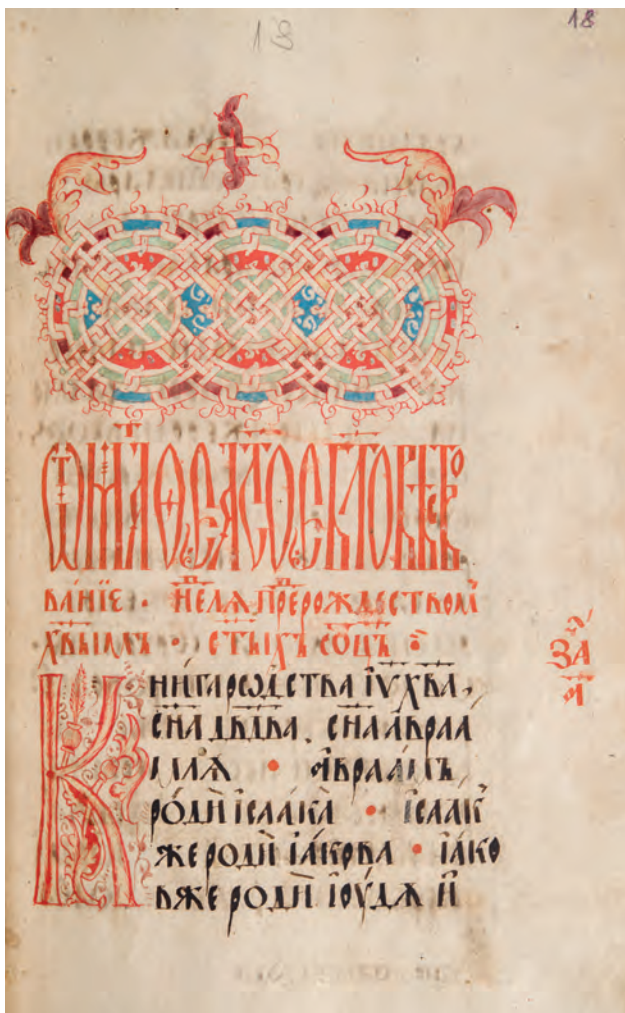 18
18
ѿ маѳеа ст҃ое бл҃говѣство
ваніе · нелѧ прⷣе рождествомⸯ
хв҃ымъ · ст҃ыхъ ѻц҃ъ
за҃
а҃
Книга рѡдства іѵ҃ хв҃а,
сн҃а дв҃да, сн҃а авраа
млѧ · авраамъ
роди̏ ісаака̀ · ісаакⸯ
же роди̏ іа́кова · іа́ко
вже роди̏ іоу́дꙋ и̏